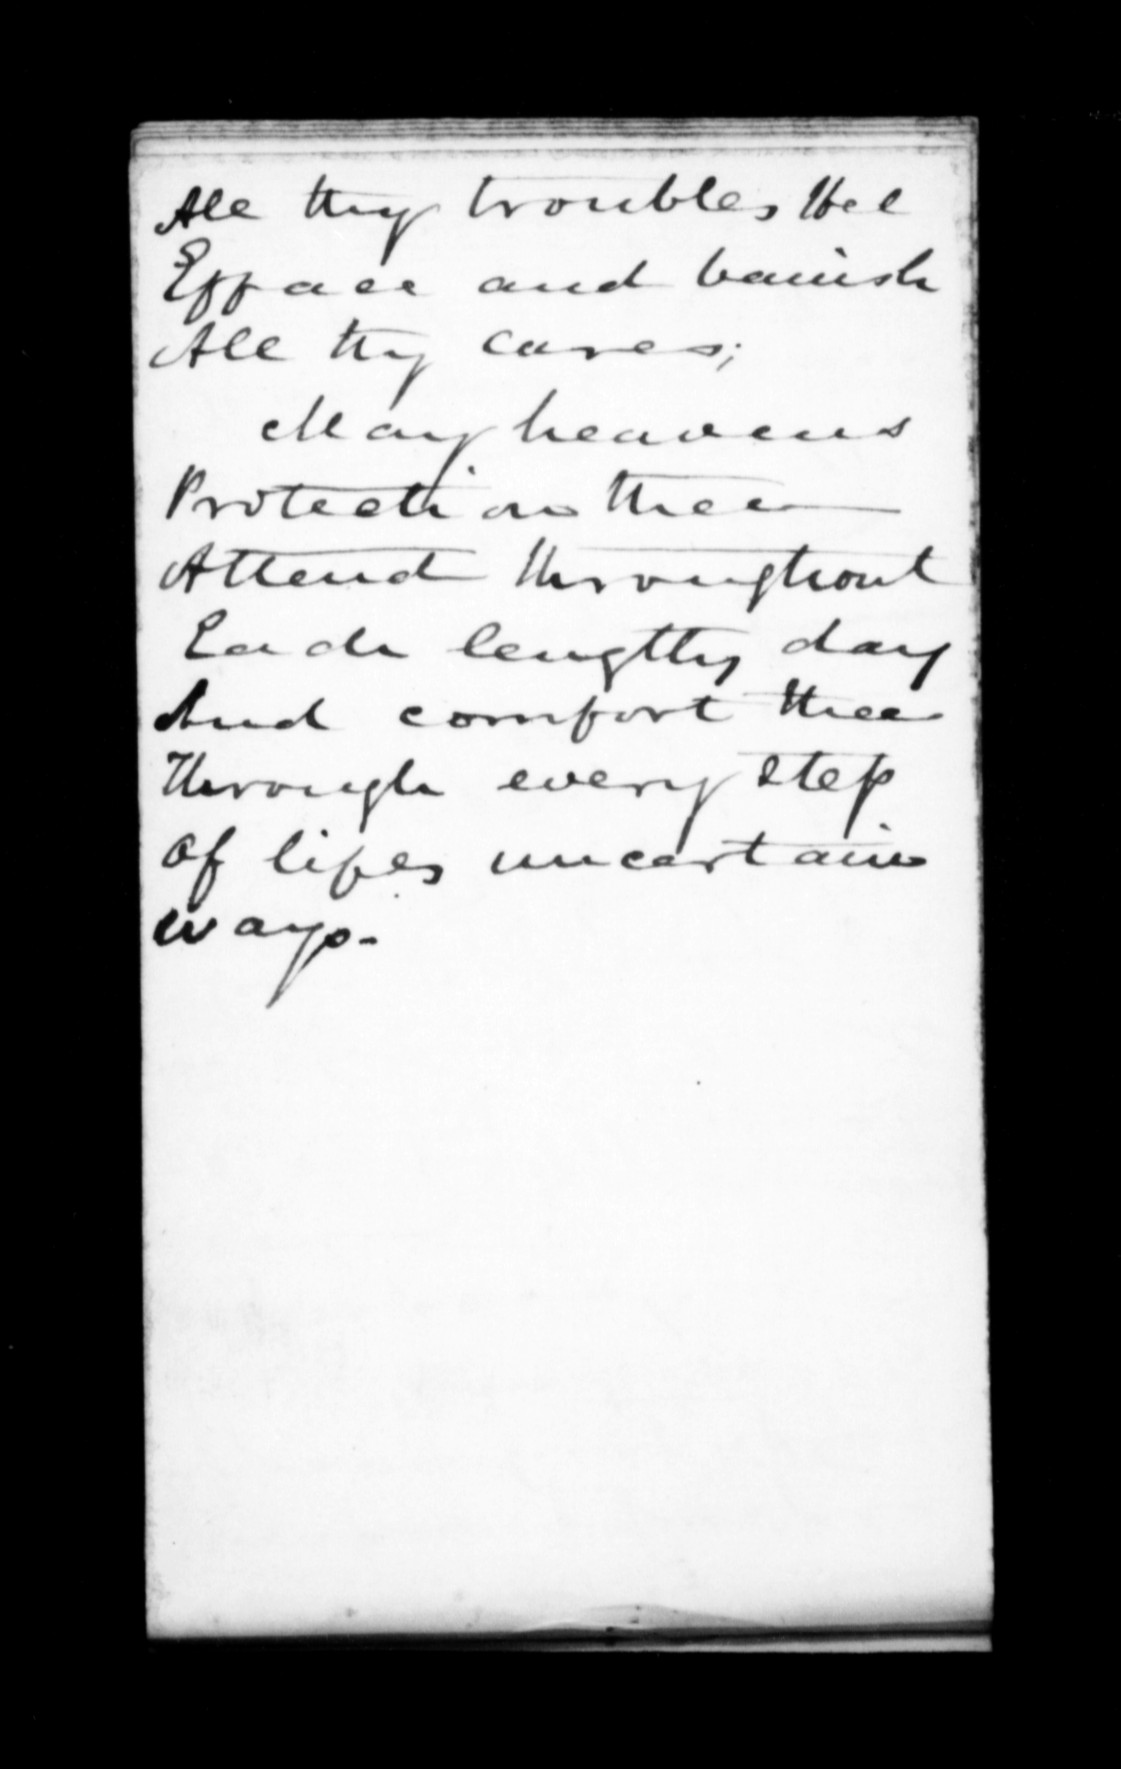 All thy troubles He'l
Efface and banish
All thy cares;
May heavens
Protection thee
Attend throughout
Each lengthy day
And comfort thee
Through every step
Of lifes uncertain
ways.